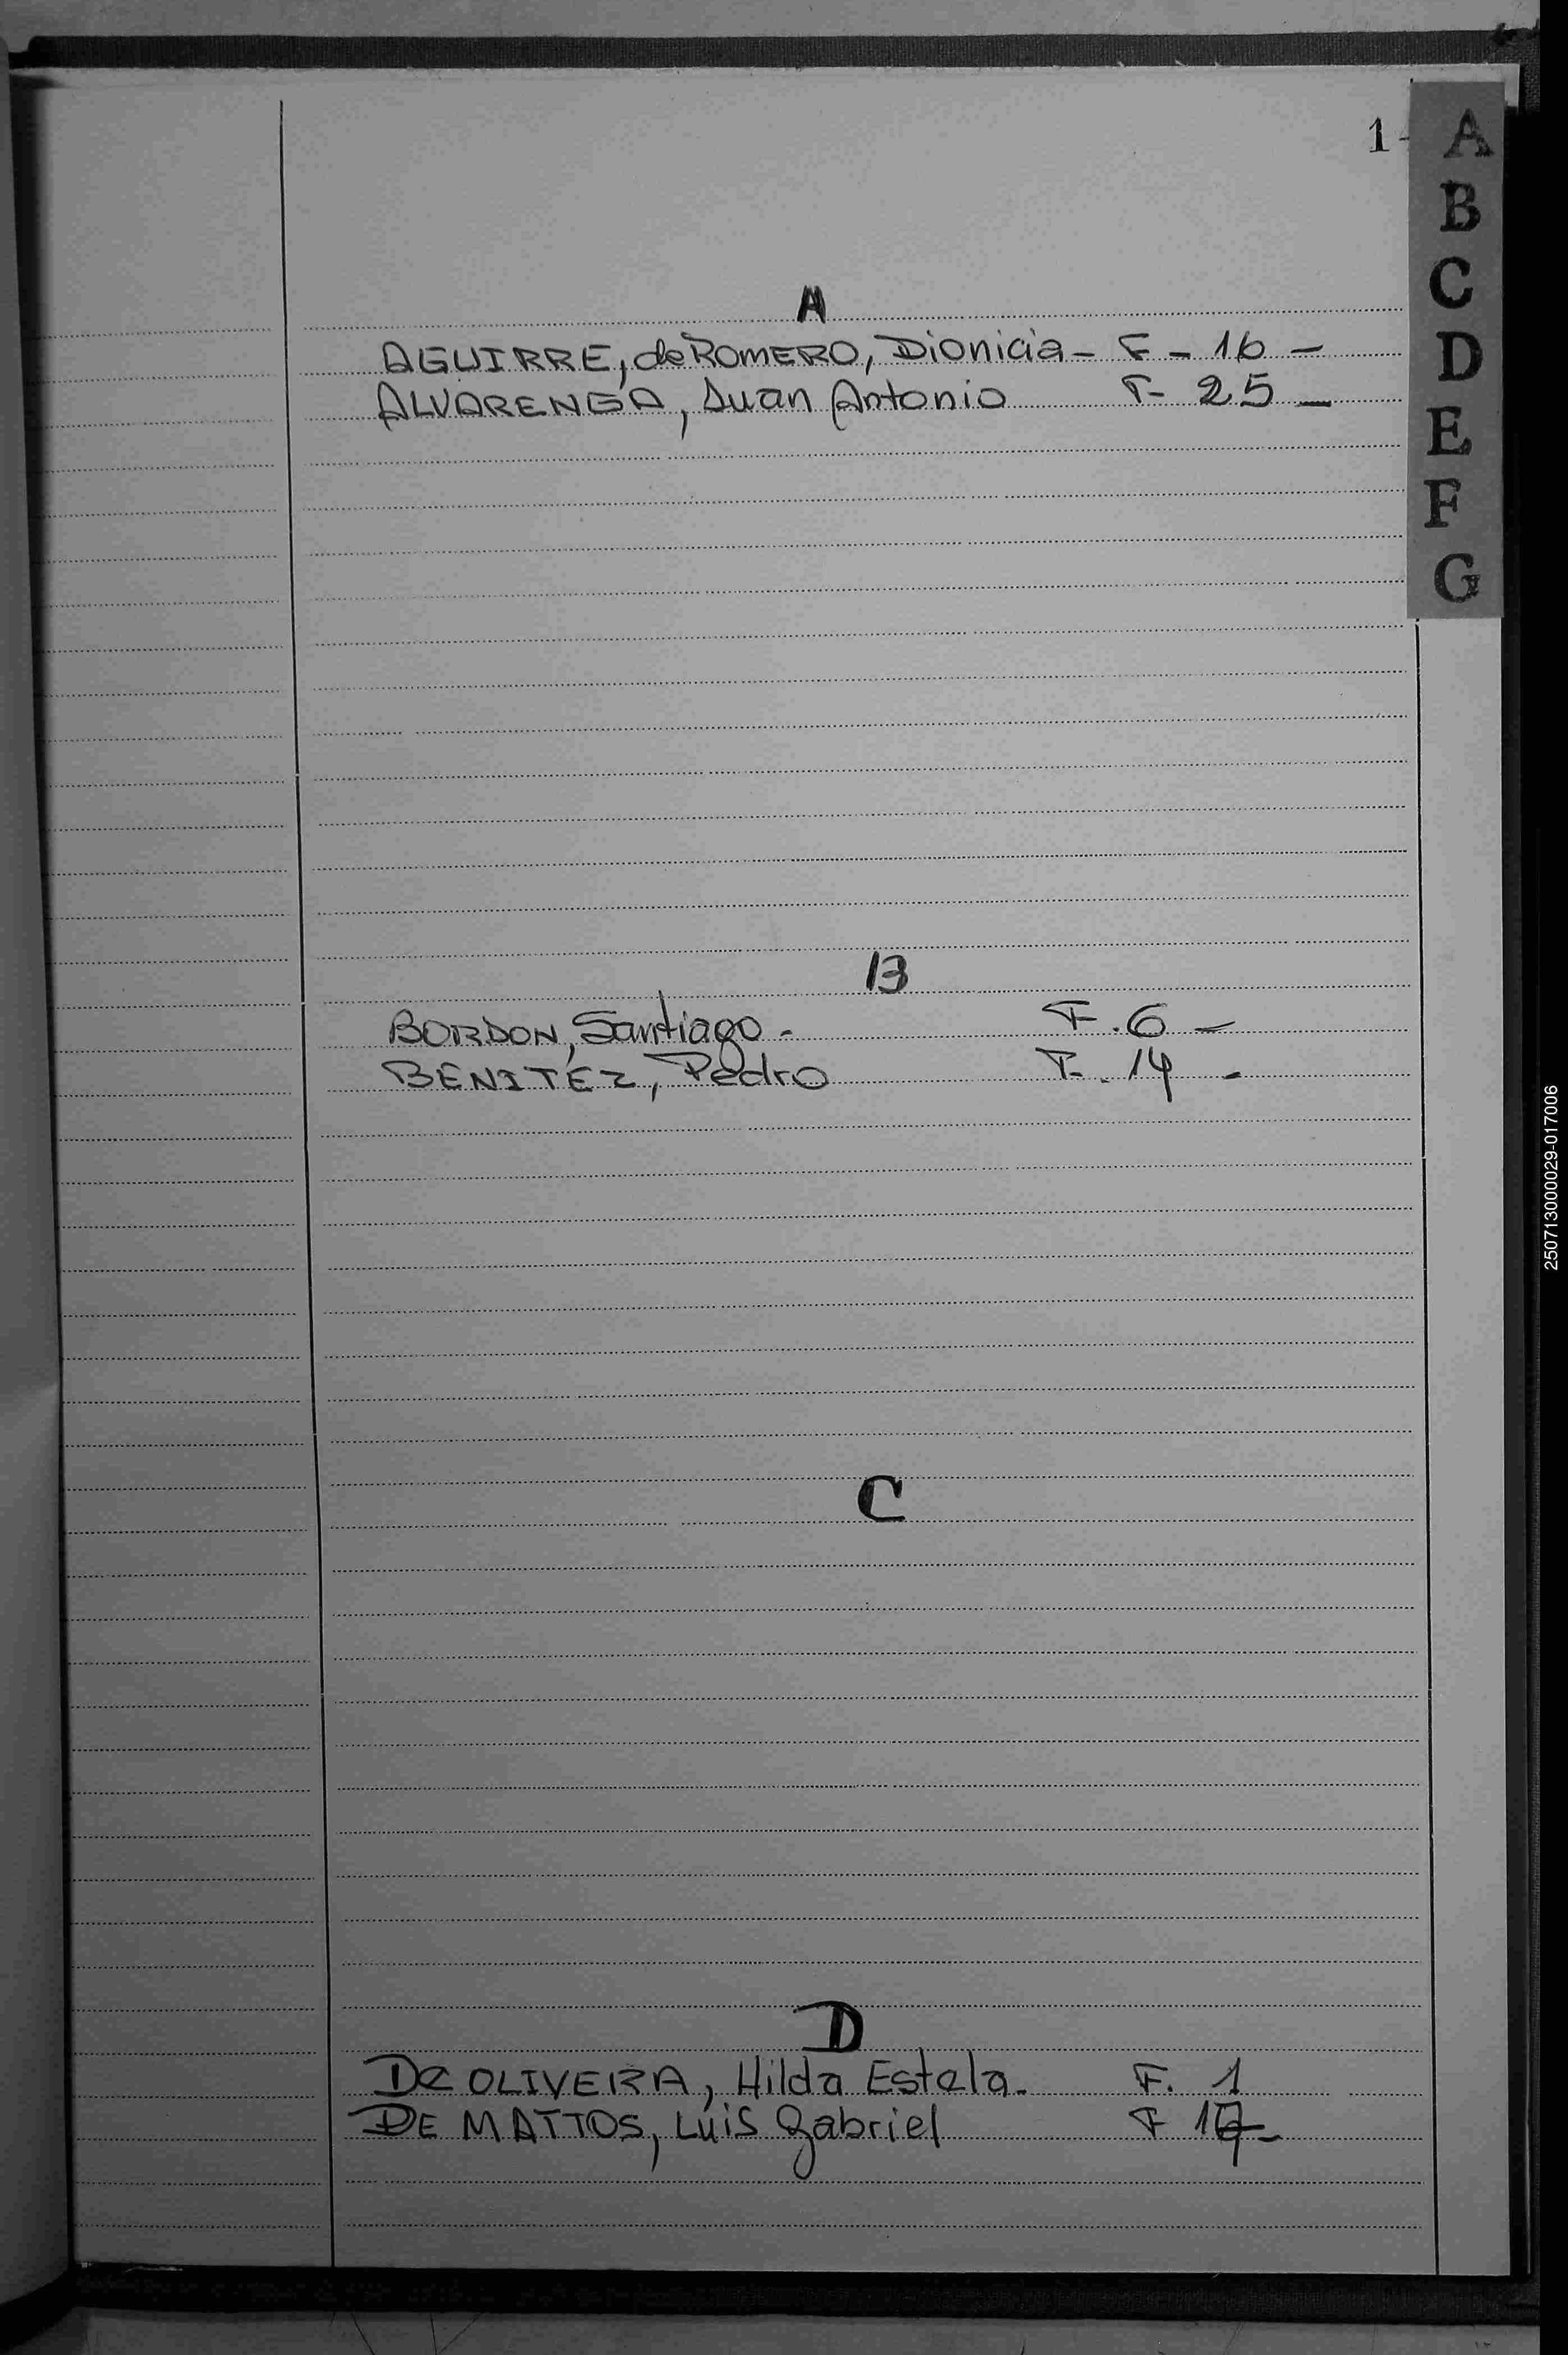 1-
A
B
C
D
E
F
G
A
AGUIRRE, de ROMERO, Dionicia - F - 16 -
ALVARENGA, Juan Antonio F- 25 -
B
BORDON, Santiago - F. 6 -
BENITEZ, Pedro F. 14 -
C
D
De OLIVEIRA, Hilda Estela. F. 1
DE MATTOS, Luis Gabriel F
250713000029-017006